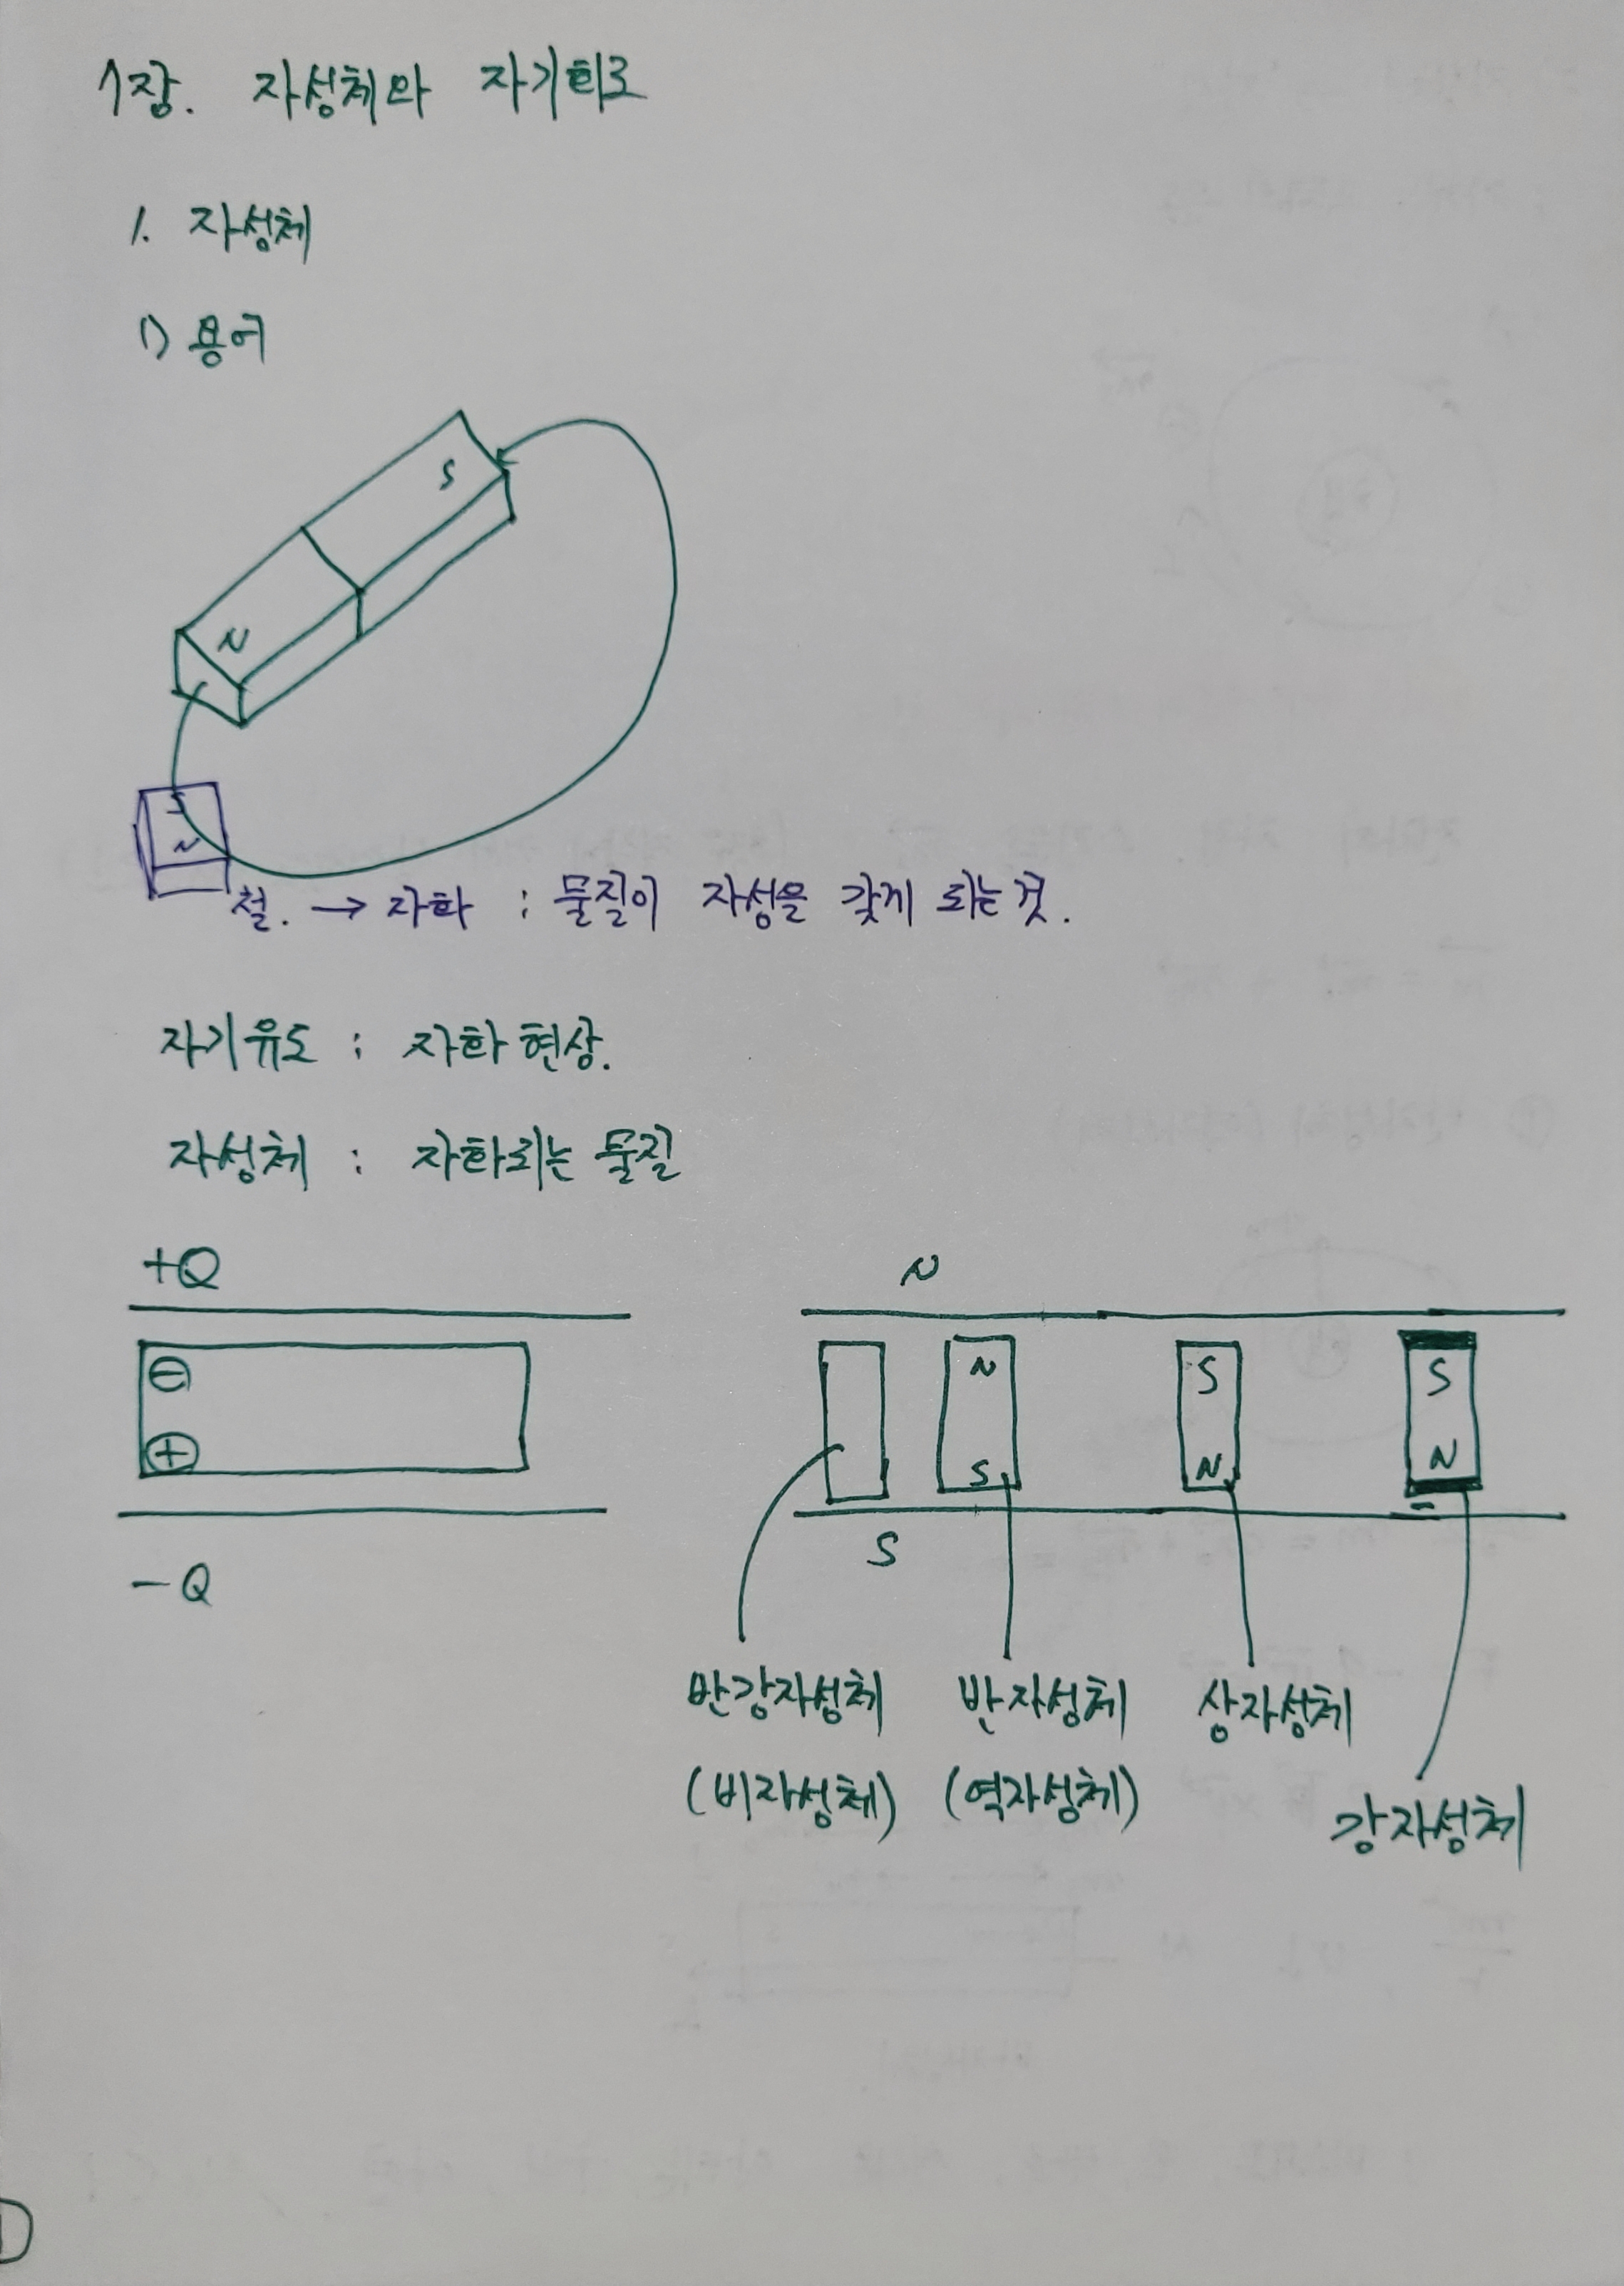 1장. 자성체와 자기회로
1. 자성체
1) 용어
S
N
S
N
철. → 자화 : 물질이 자성을 갖게 되는 것.
자기유도 : 자화 현상.
자성체 : 자화되는 물질
+Q
⊖
⊕
-Q
N
N S S
S N N
S
반강자성체 반자성체 상자성체
(비자성체) (역자성체) 강자성체